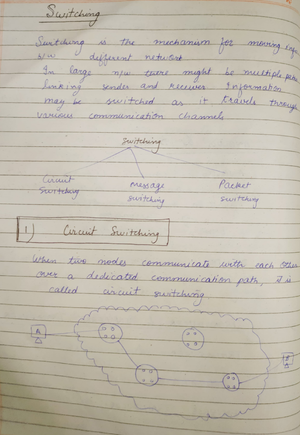 Switching
Switching is the mechanism for moving info
b/w different network
In large n/w there might be multiple paths
linking sender and receiver. Information
may be switched as it travels through
various communication channels
Switching
Circuit Message Packet
Switching switching switching
1) Circuit Switching
When two nodes communicate with each other
over a dedicated communication path, it is
called circuit switching
A